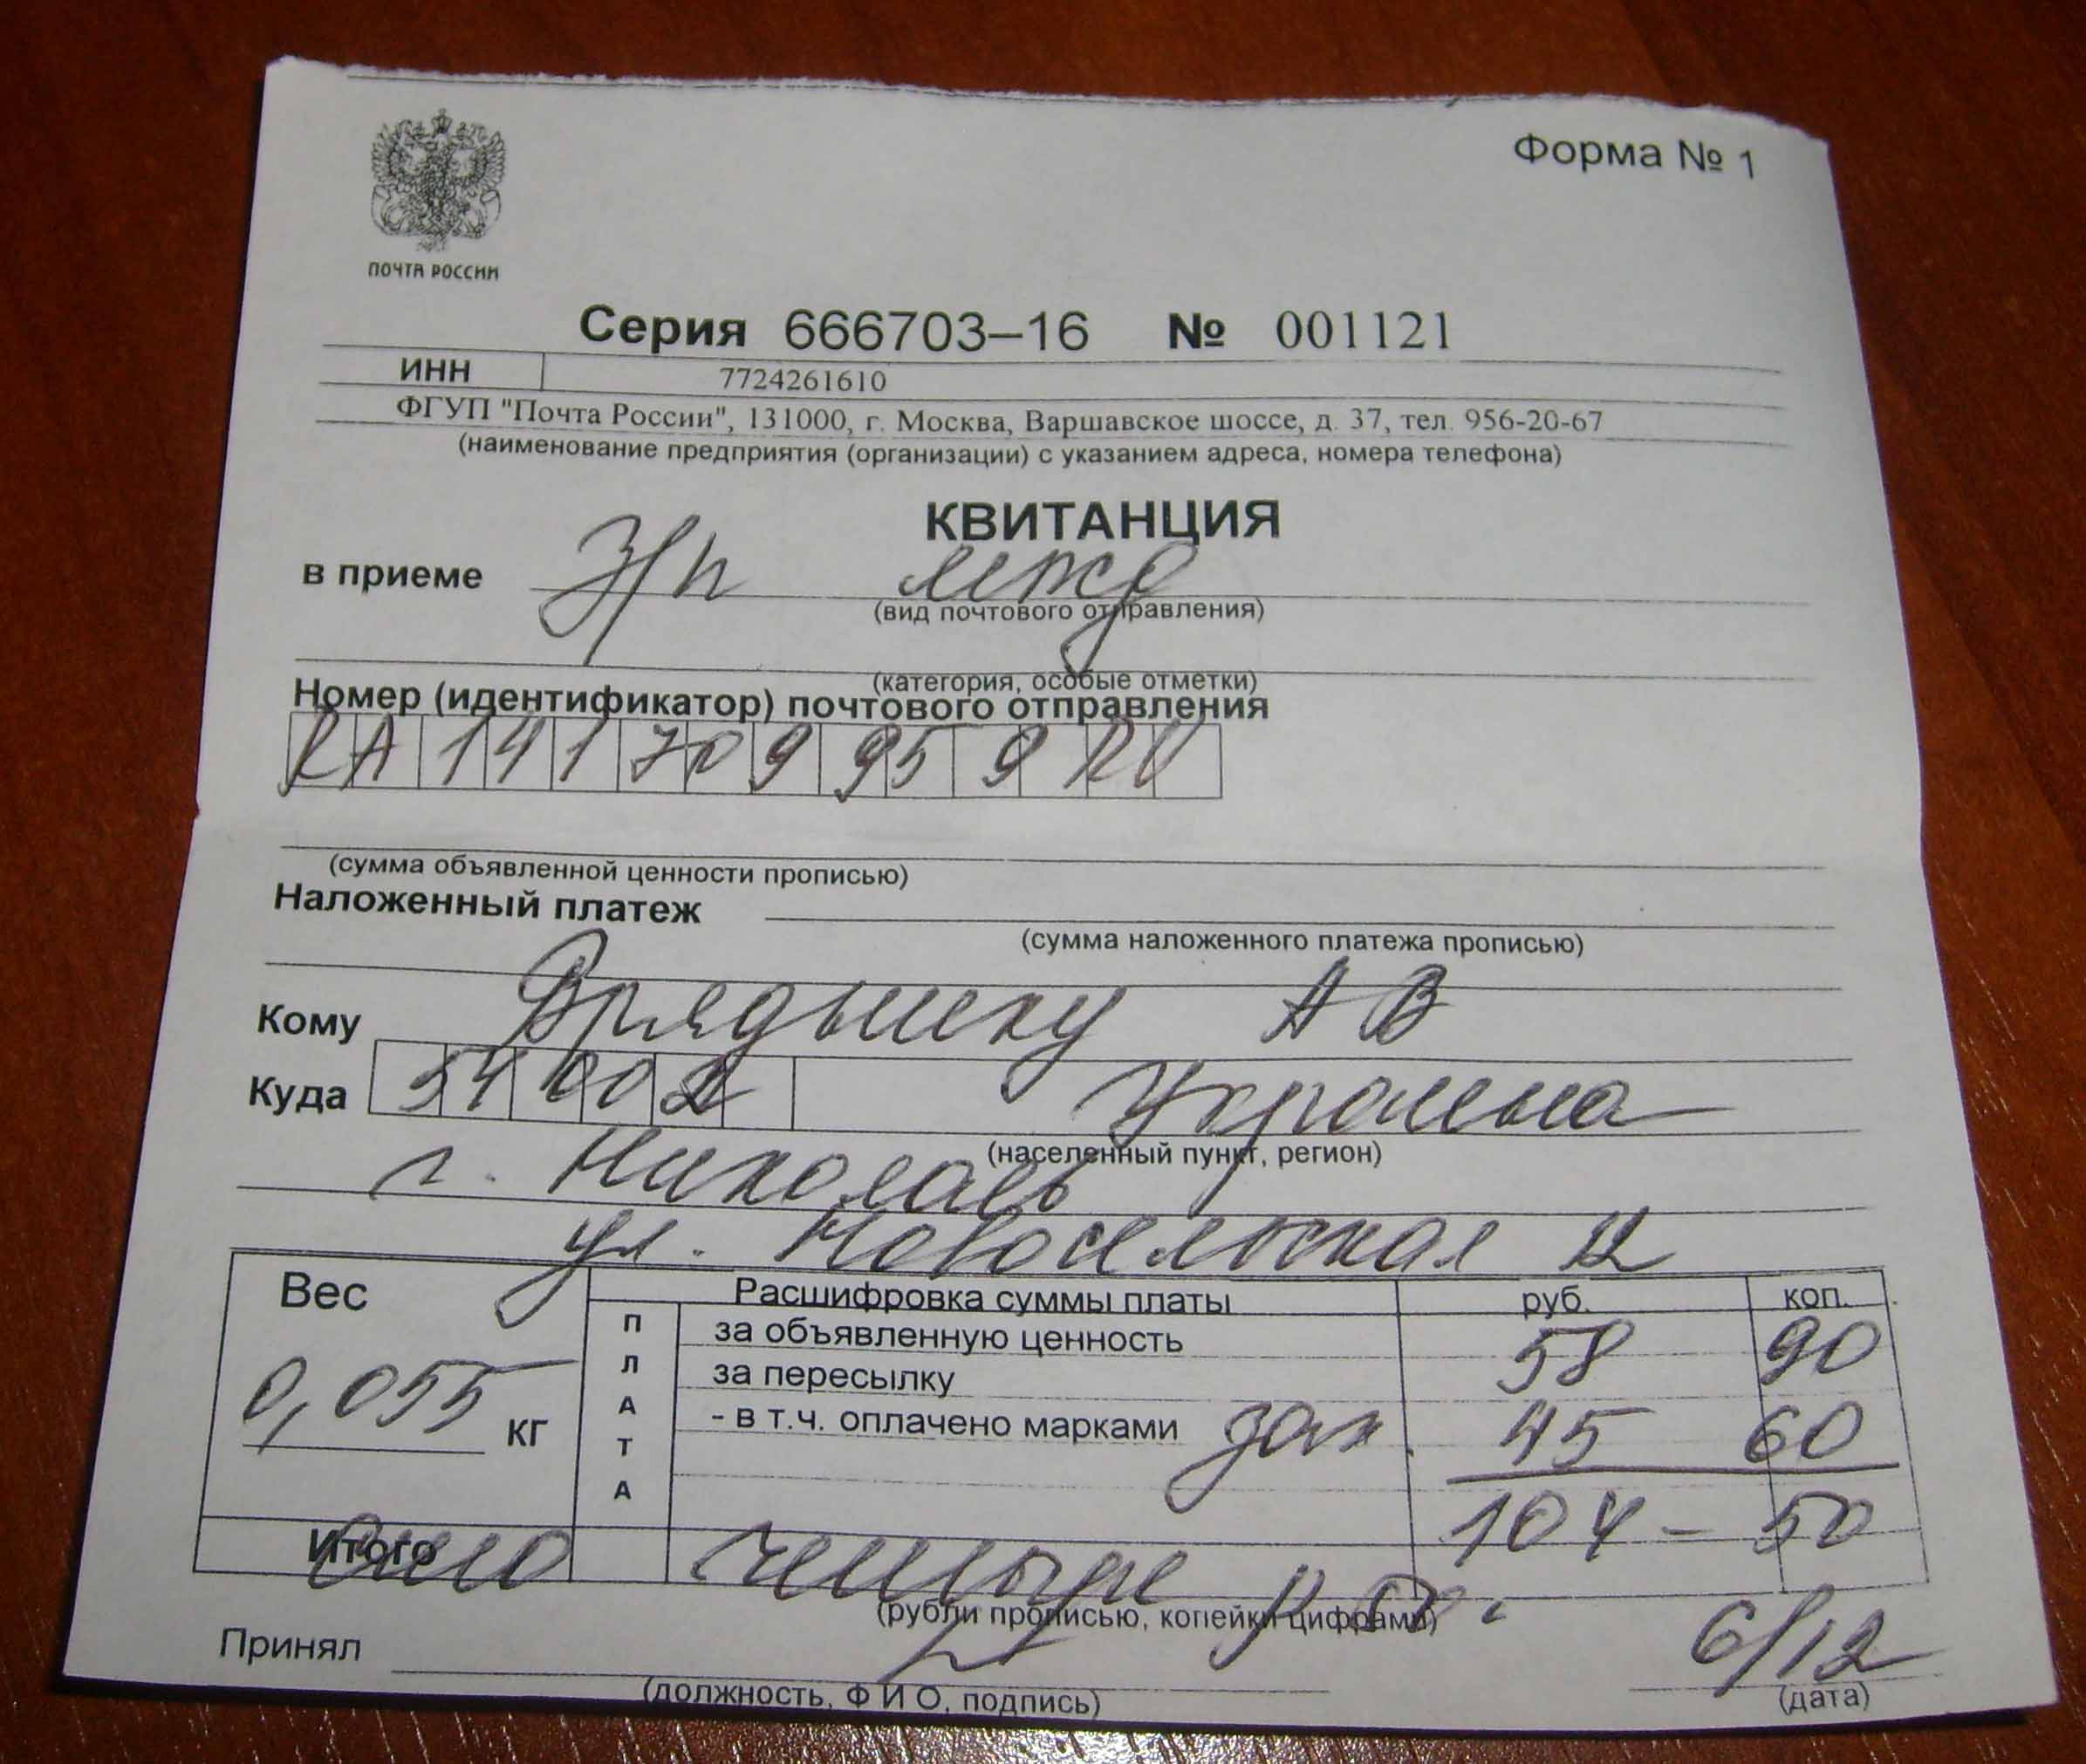 Форма № 1
ПОЧТА РОССИИ
Серия 666703–16 № 001121
ИНН 7724261610
ФГУП "Почта России", 131000, г. Москва, Варшавское шоссе, д. 37, тел. 956-20-67
(наименование предприятия (организации) с указанием адреса, номера телефона)
КВИТАНЦИЯ
в приеме З/п межд
(вид почтового отправления)
(категория, особые отметки)
Номер (идентификатор) почтового отправления
RA141709959RU
(сумма объявленной ценности прописью)
Наложенный платеж
(сумма наложенного платежа прописью)
Кому А В
Куда 54002 Украина
(населенный пункт, регион)
г. Николаев
ул. Новосельская
Вес Расшифровка суммы платы руб. коп.
ПЛАТА
за объявленную ценность 58 90
за пересылку
0,055 кг - в т.ч. оплачено марками зак. 45 60
104 – 50
Итого сто четыре р 50.
(рубли прописью, копейки цифрами)
Принял 6/12
(должность, Ф И О, подпись) (дата)